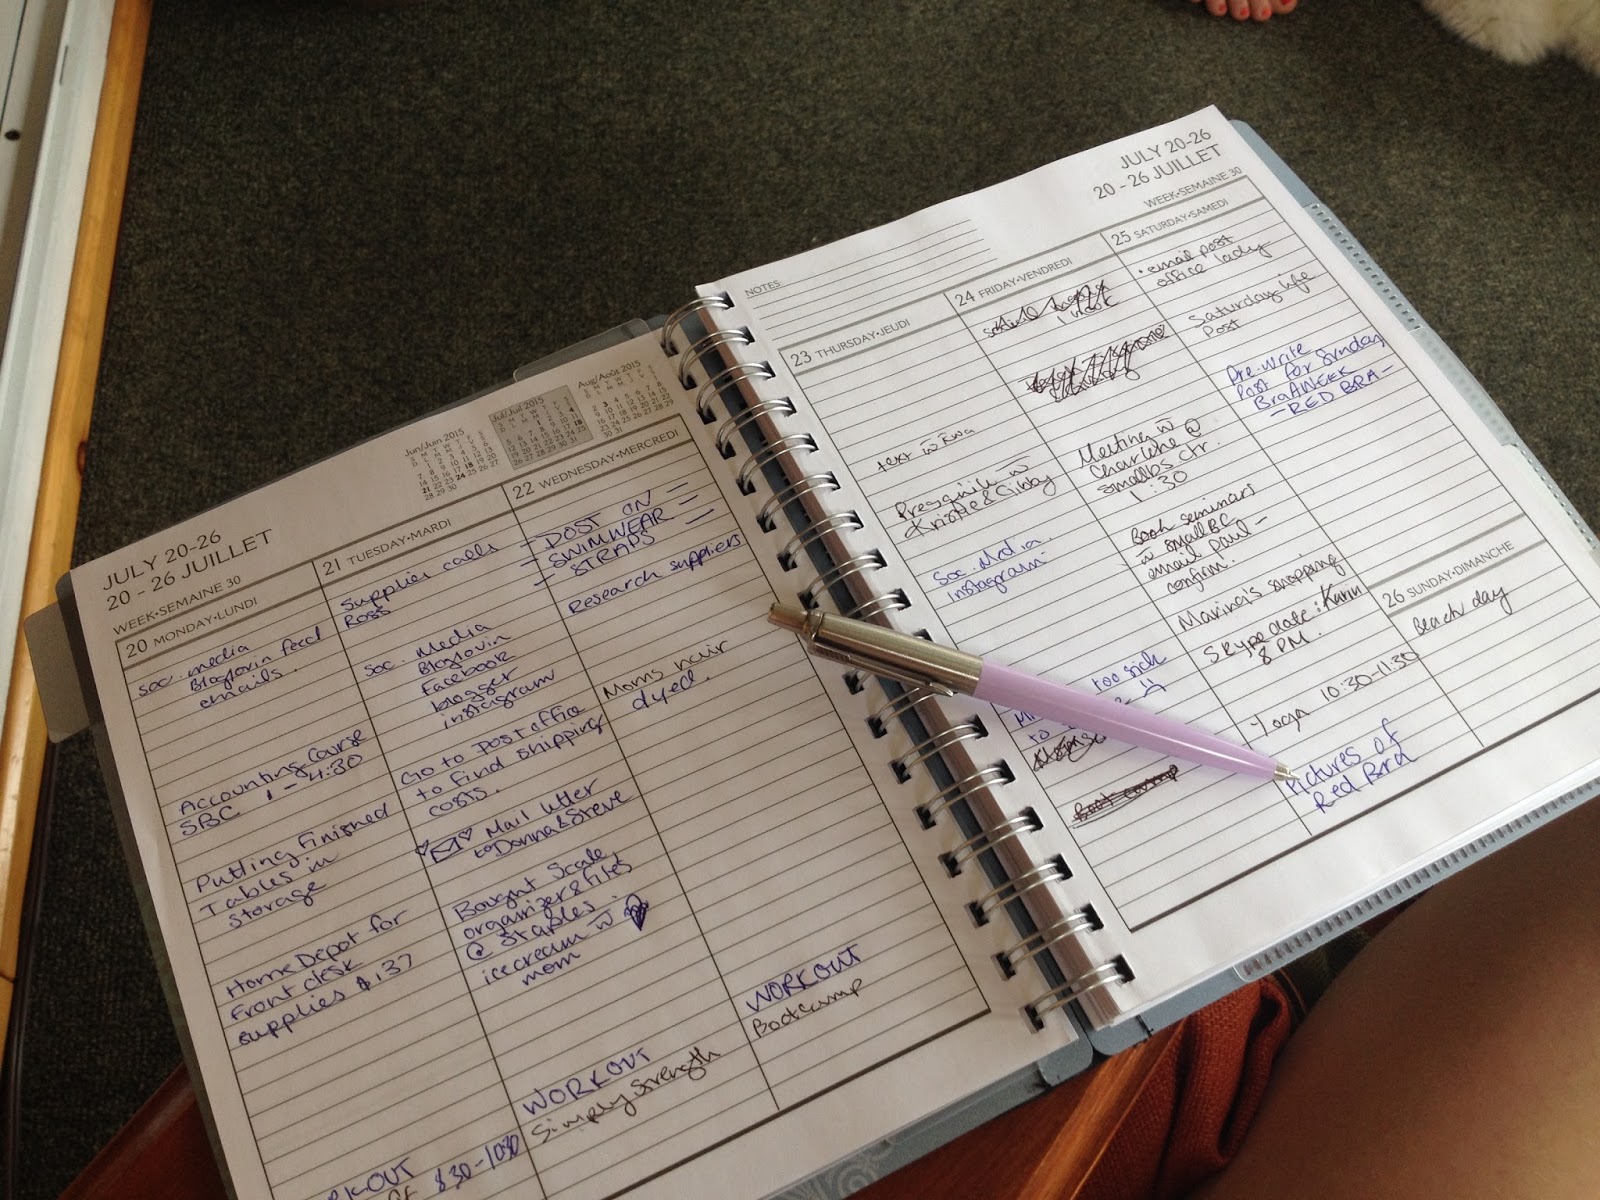 JULY 20-26
20 - 26 JUILLET
WEEK•SEMAINE 30
Jun/Juin 2015
Jul/Juil 2015
Aug/Août 2015
20 MONDAY•LUNDI
soc. media
Bloglovin feed
emails.
Accounting Course
SBC 1 - 4:30
Putting Finished
Tables in
storage
Home Depot for
Front desk
supplies $137
21 TUESDAY•MARDI
Supplier calls
Ross
Soc. Media
Bloglovin
Facebook
blogger
instagram
Go to Post office
to find shipping
costs.
Mail letter
to Donna & Steve
Bought Scale,
organizer & files
@ Staples.
icecream w
mom
WORKOUT
Simply Strength
22 WEDNESDAY•MERCREDI
- POST ON -
- SWIMWEAR -
- STRAPS -
Research suppliers
Moms hair
dyed.
WORKOUT
Bootcamp
JULY 20-26
20 - 26 JUILLET
WEEK•SEMAINE 30
NOTES
23 THURSDAY•JEUDI
text w
Presquile w
Kristie & Gibby
Soc. Media.
instagram
too sick
to
Bootcamp
24 FRIDAY•VENDREDI
Meeting w
Charlene @
smallbs ctr.
1:30
Book seminars
w small BC
email paul -
confirm.
Marina's shopping
Skype date: Karin
8 PM.
Yoga 10:30-11:30
Pictures of
Red Bra
25 SATURDAY•SAMEDI
• email post
office lady
Saturday life
Post
Pre-write
Post for Sunday
BraAWEEK
- RED BRA -
26 SUNDAY•DIMANCHE
Beach day